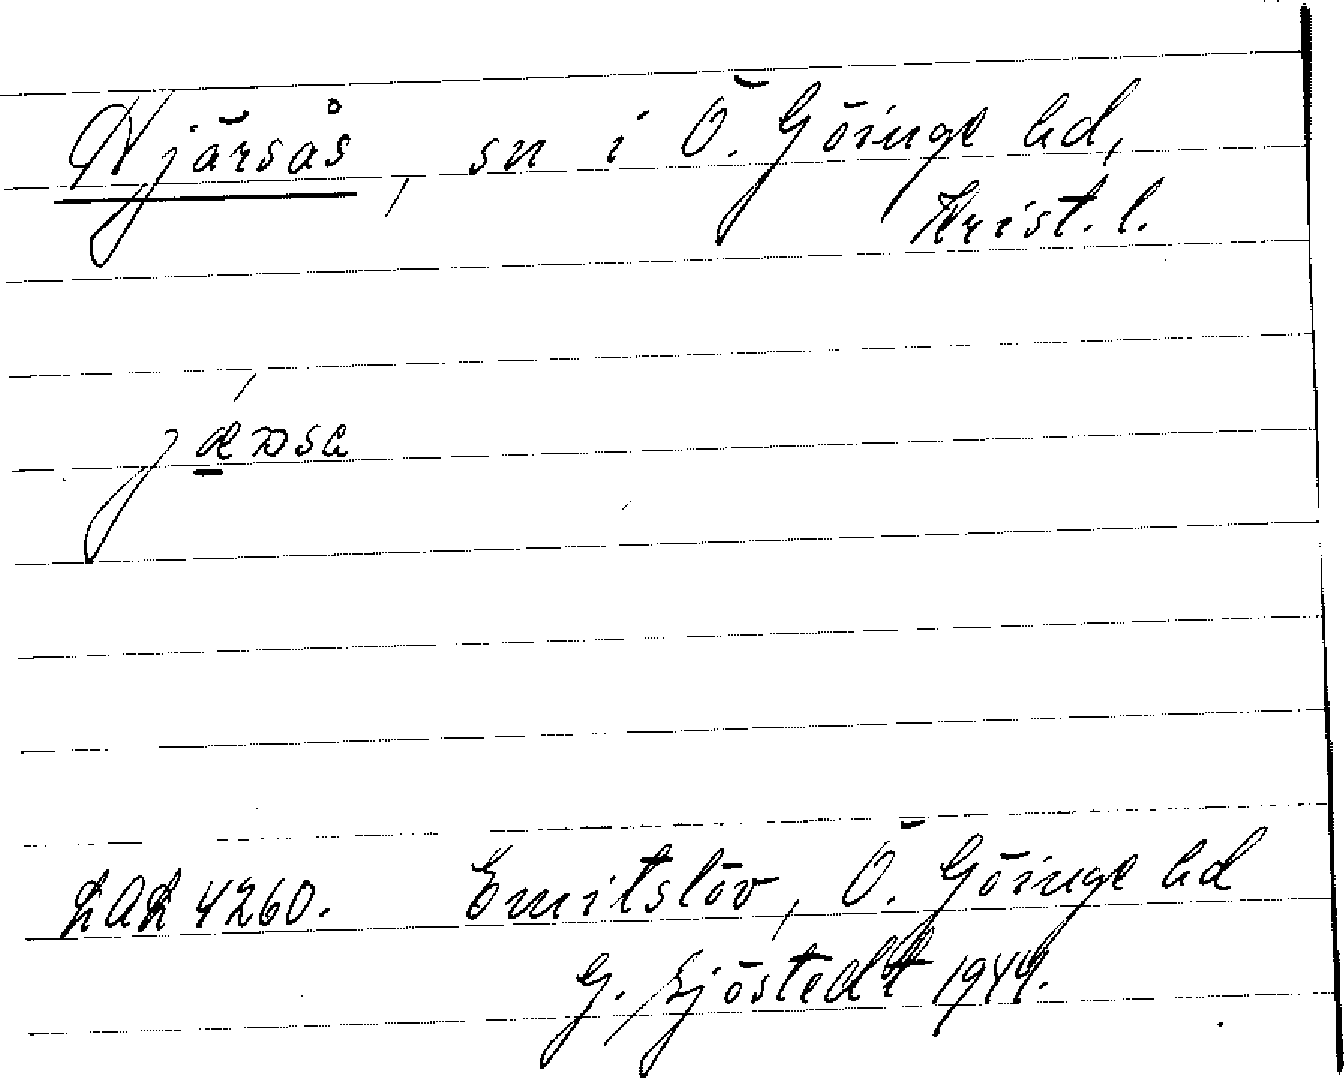 Hjärsås, sn i Ö. Göinge hd,
Krist. l.
LAL 4260. Emitslöv, Ö. Göinge hd
G. Sjöstedt 1944.